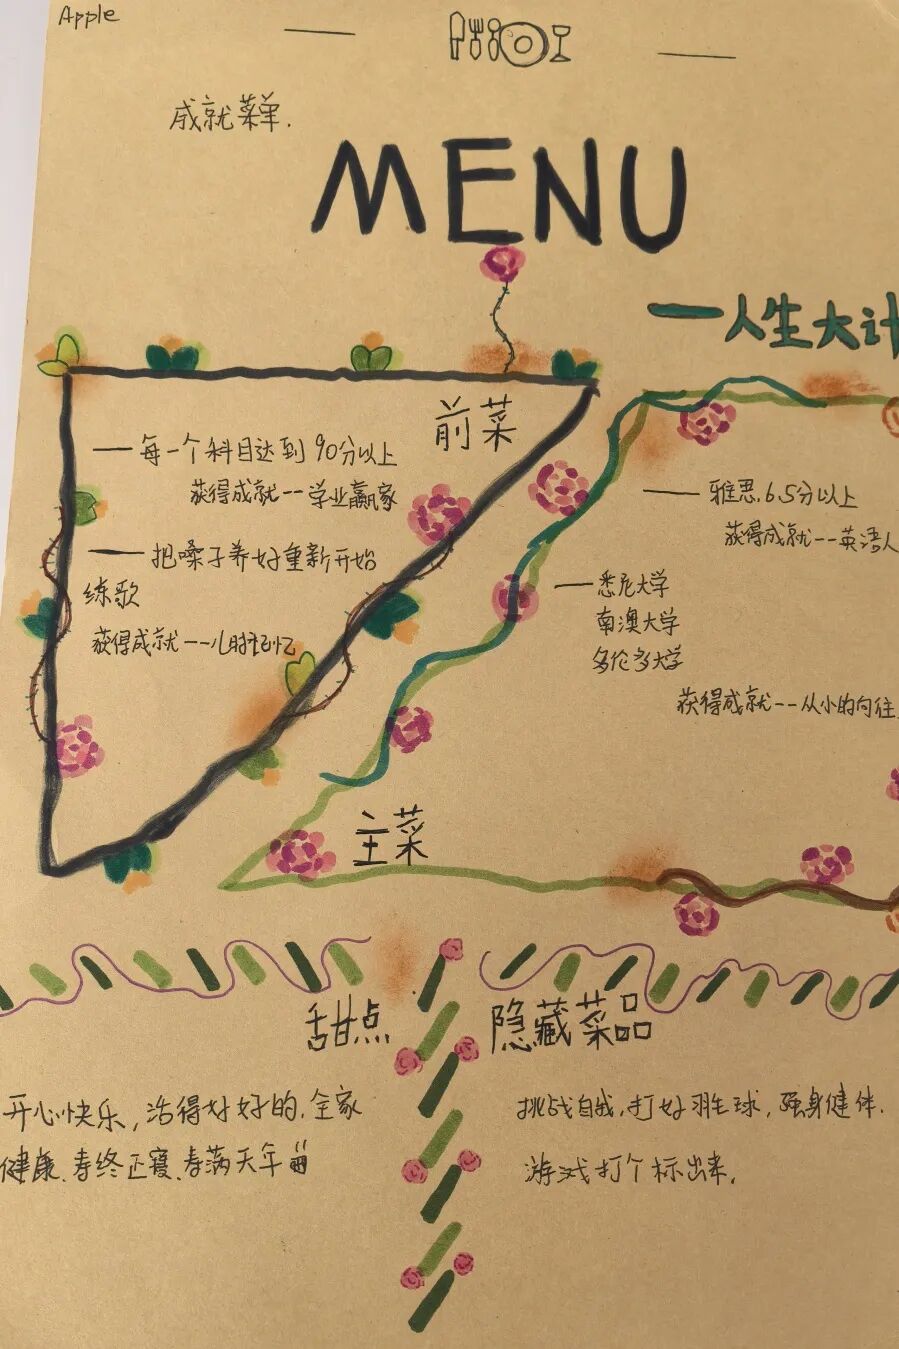 Apple
成就菜单.
MENU
一人生大计
前菜
— 每一个科目达到90分以上
获得成就--学业赢家
— 把嗓子养好重新开始
练歌
获得成就--儿时记忆
— 雅思6.5分以上
获得成就--英语人
— 悉尼大学
南澳大学
多伦多大学
获得成就--从小的向往
主菜
甜点
开心快乐,活得好好的.全家
健康.寿终正寝.寿满天年
隐藏菜品
挑战自我,打好羽毛球,强身健体.
游戏打个标出来.